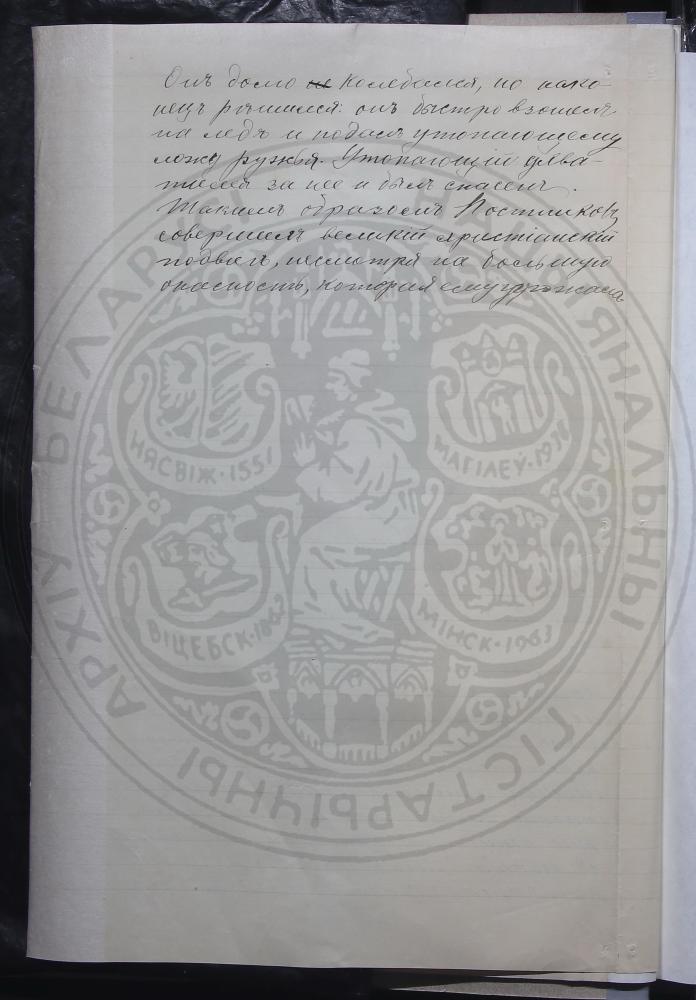 Онъ долго не колебался, но нако-
нецъ рѣшился: онъ быстро взошелъ
на ледъ и подалъ утопающему
ложу ружья. Утопающій ухва-
тился за нее и былъ спасенъ.
Такимъ образомъ Постниковъ
совершилъ великій христіанскій
подвигъ, несмотря на большую
опасность, которая ему угрожала
БЕЛАРУСІ
НАЦЫЯНАЛЬНЫ
ГІСТАРЫЧНЫ
АРХІЎ
НЯСВІЖ·1551
МАГІЛЕЎ·19
ВІЦЕБСК·1863
МІНСК·1963